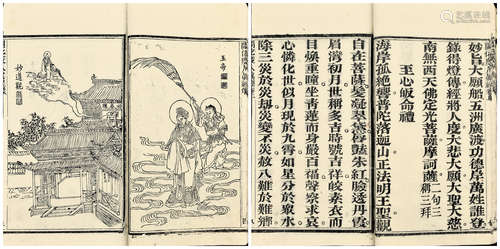 妙旨大願船五洲廣渡功德岸萬姓誰登
錄得燈傳經將人度大悲大願大聖大慈
南無西天佛定光菩薩摩訶薩二句三稱三拜
王心皈命禮
海岸孤絕處普陀落迦山正法明王聖觀
自在菩薩髮凝翠黛唇艷朱紅臉透丹霞
眉灣初月世稱多吉時號吉祥皎素衣而
目煥重瞳坐青蓮而身嚴百福聲察求哀
心憐化世似月現於九霄如星分於眾水
除三災於災劫變不災赦八難於難鄉